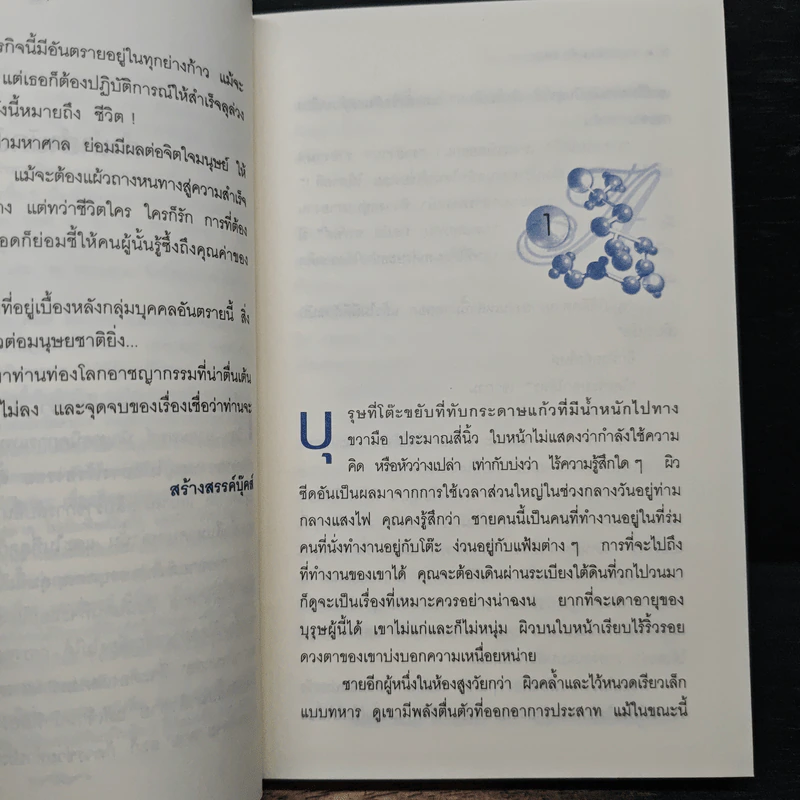 รกิจนี้มีอันตรายอยู่ในทุกย่างก้าว แม้จะ
แต่เธอก็ต้องปฏิบัติการณ์ให้สำเร็จลุล่วง
งนี้หมายถึง ชีวิต !
ามหาศาล ย่อมมีผลต่อจิตใจมนุษย์ ให้
แม้จะต้องแผ้วถางหนทางสู่ความสำเร็จ
าง แต่ทว่าชีวิตใคร ใครก็รัก การที่ต้อง
อดก็ย่อมชี้ให้คนผู้นั้นรู้ซึ้งถึงคุณค่าของ
ที่อยู่เบื้องหลังกลุ่มบุคคลอันตรายนี้ สิ่ง
วต่อมนุษยชาติยิ่ง...
าท่านท่องโลกอาชญากรรมที่น่าตื่นเต้น
ไม่ลง และจุดจบของเรื่องเชื่อว่าท่านจะ
สร้างสรรค์บุ๊คส์
1
บุรุษที่โต๊ะขยับที่ทับกระดาษแก้วที่มีน้ำหนักไปทาง
ขวามือ ประมาณสี่นิ้ว ใบหน้าไม่แสดงว่ากำลังใช้ความ
คิด หรือหัวว่างเปล่า เท่ากับบ่งว่า ไร้ความรู้สึกใด ๆ ผิว
ซีดอันเป็นผลมาจากการใช้เวลาส่วนใหญ่ในช่วงกลางวันอยู่ท่าม
กลางแสงไฟ คุณคงรู้สึกว่า ชายคนนี้เป็นคนที่ทำงานอยู่ในที่ร่ม
คนที่นั่งทำงานอยู่กับโต๊ะ ง่วนอยู่กับแฟ้มต่าง ๆ การที่จะไปถึง
ที่ทำงานของเขาได้ คุณจะต้องเดินผ่านระเบียงใต้ดินที่วกไปวนมา
ก็ดูจะเป็นเรื่องที่เหมาะควรอย่างน่าฉงน ยากที่จะเดาอายุของ
บุรุษผู้นี้ได้ เขาไม่แก่และก็ไม่หนุ่ม ผิวบนใบหน้าเรียบไร้ริ้วรอย
ดวงตาของเขาบ่งบอกความเหนื่อยหน่าย
ชายอีกผู้หนึ่งในห้องสูงวัยกว่า ผิวคล้ำและไว้หนวดเรียวเล็ก
แบบทหาร ดูเขามีพลังตื่นตัวที่ออกอาการประสาท แม้ในขณะนี้